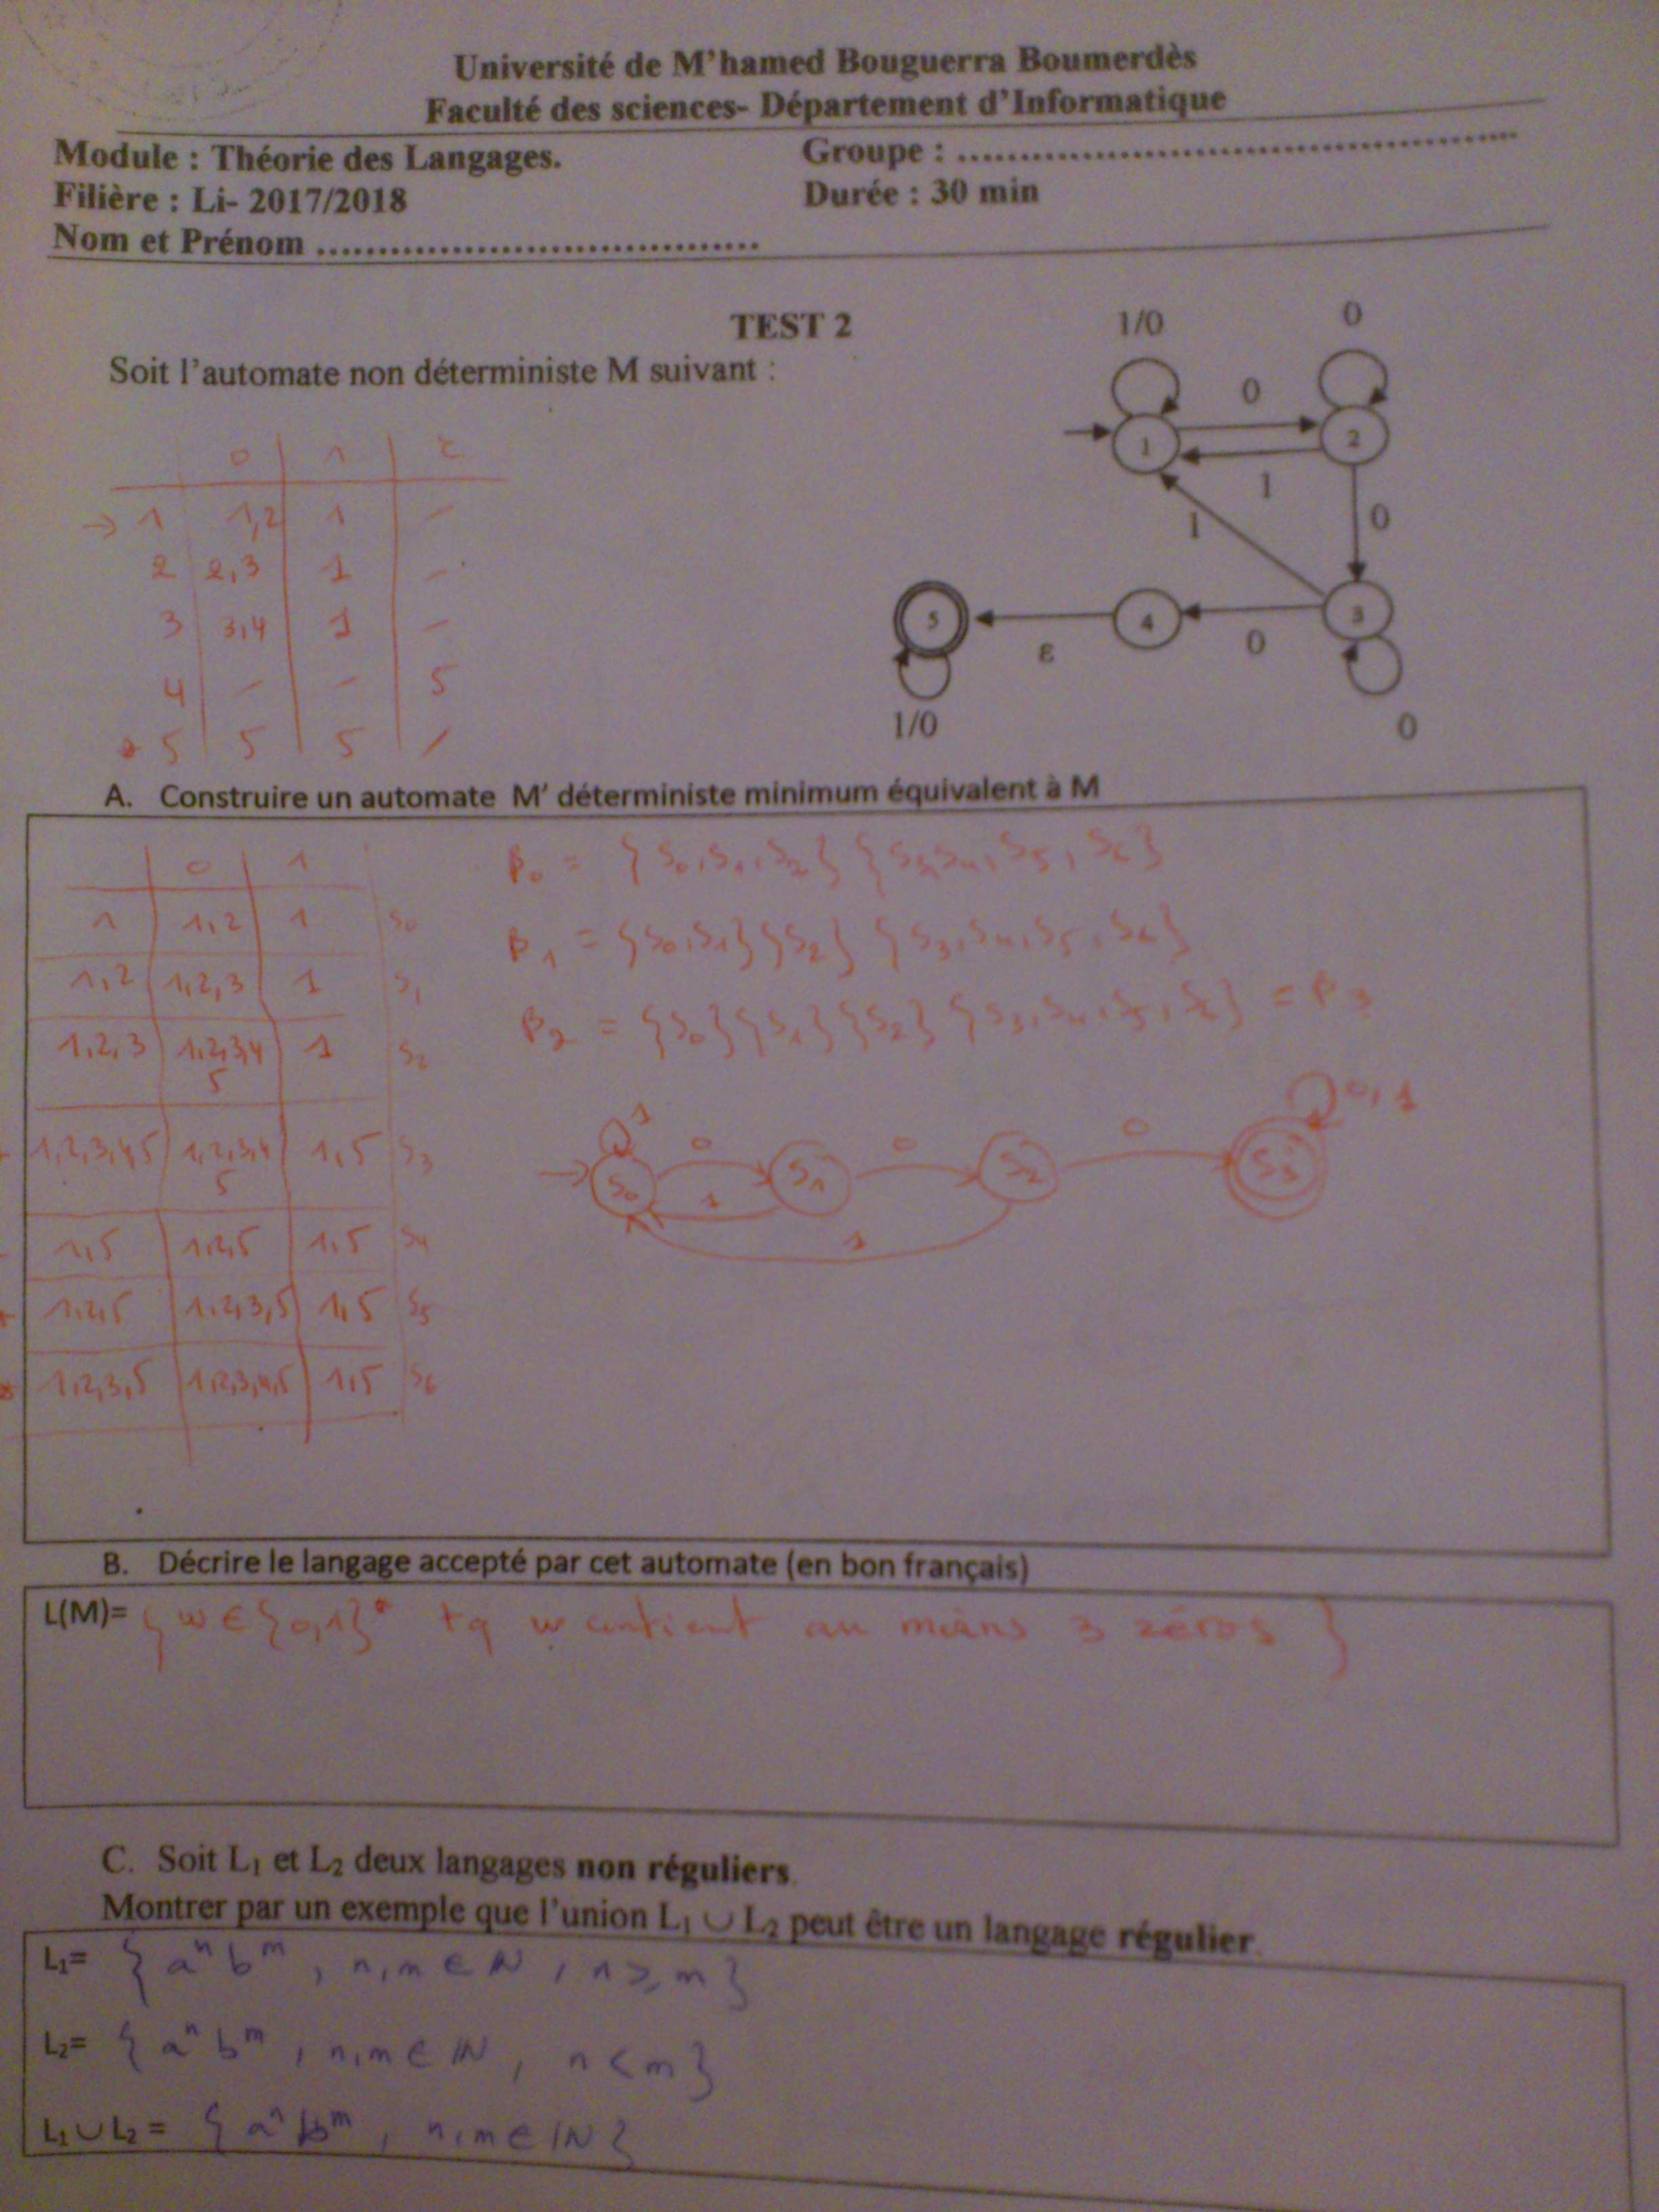 Université de M'hamed Bouguerra Boumerdès
Faculté des sciences- Département d'Informatique
Module : Théorie des Langages.
Groupe : ..................................................
Filière : Li- 2017/2018
Durée : 30 min
Nom et Prénom ..................................
TEST 2
Soit l'automate non déterministe M suivant :
1/0 0
0
1 2
1
0
1
5 4 3
ε 0
1/0 0
0 1 ε
→ 1 1,2 1 –
2 2,3 1 –
3 3,4 1 –
4 – – 5
* 5 5 5 /
A. Construire un automate M' déterministe minimum équivalent à M
0 1
1 1,2 1 S0
1,2 1,2,3 1 S1
1,2,3 1,2,3,4 5 1 S2
1,2,3,4,5 1,2,3,4 5 1,5 S3
1,5 1,2,5 1,5 S4
* 1,2,5 1,2,3,5 1,5 S5
* 1,2,3,5 1,2,3,4,5 1,5 S6
P0 = {S0,S1,S2} {S3,S4,S5,S6}
P1 = {S0,S1}{S2} {S3,S4,S5,S6}
P2 = {S0}{S1}{S2} {S3,S4,S5,S6} = P3
1 0 0 0 0,1
S0 S1 S2 S3
1
1
B. Décrire le langage accepté par cet automate (en bon français)
L(M)= {w ∈ {0,1}* tq w contient au moins 3 zéros }
C. Soit L1 et L2 deux langages non réguliers.
Montrer par un exemple que l'union L1 ∪ L2 peut être un langage régulier.
L1= { aⁿ bᵐ , n,m ∈ IN , n ≥ m }
L2= { aⁿ bᵐ , n,m ∈ IN , n < m }
L1 ∪ L2 = { aⁿ bᵐ , n,m ∈ IN }